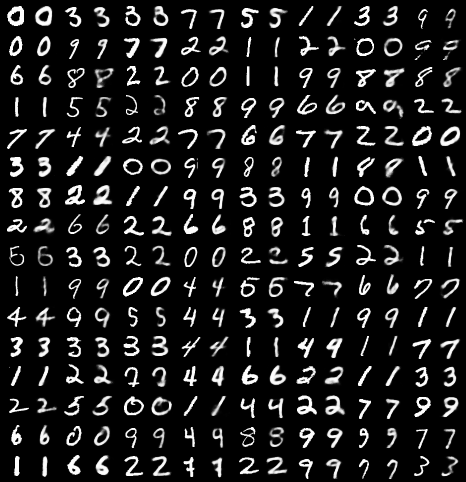 0 0 3 3 3 3 7 7 5 5 1 1 3 3 9 9
0 0 9 9 7 7 2 2 1 1 2 2 0 0 9 9
6 6 8 8 2 2 0 0 1 1 9 9 8 8 8 8
1 1 5 5 2 2 8 8 9 9 6 6 9 9 2 2
7 7 4 4 2 2 7 7 6 6 7 7 2 2 0 0
3 3 1 1 0 0 9 9 8 8 1 1 8 8 1 1
8 8 2 2 1 1 9 9 3 3 9 9 0 0 9 9
2 2 6 6 2 2 6 6 8 8 1 1 6 6 5 5
5 5 3 3 2 2 0 0 2 2 5 5 2 2 1 1
1 1 9 9 0 0 4 4 5 5 7 7 6 6 7 7
4 4 9 9 5 5 4 4 3 3 1 1 9 9 1 1
3 3 3 3 3 3 4 4 1 1 4 9 1 1 7 7
1 1 2 2 7 7 4 4 6 6 2 2 1 1 3 3
2 2 5 5 0 0 1 1 4 4 2 2 7 7 9 9
6 6 0 0 9 9 4 9 8 8 9 9 9 9 7 7
1 1 6 6 2 2 7 7 2 2 9 9 7 7 3 3